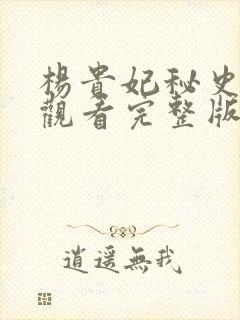 楊貴妃秘史
觀看完整版
逍遥無我